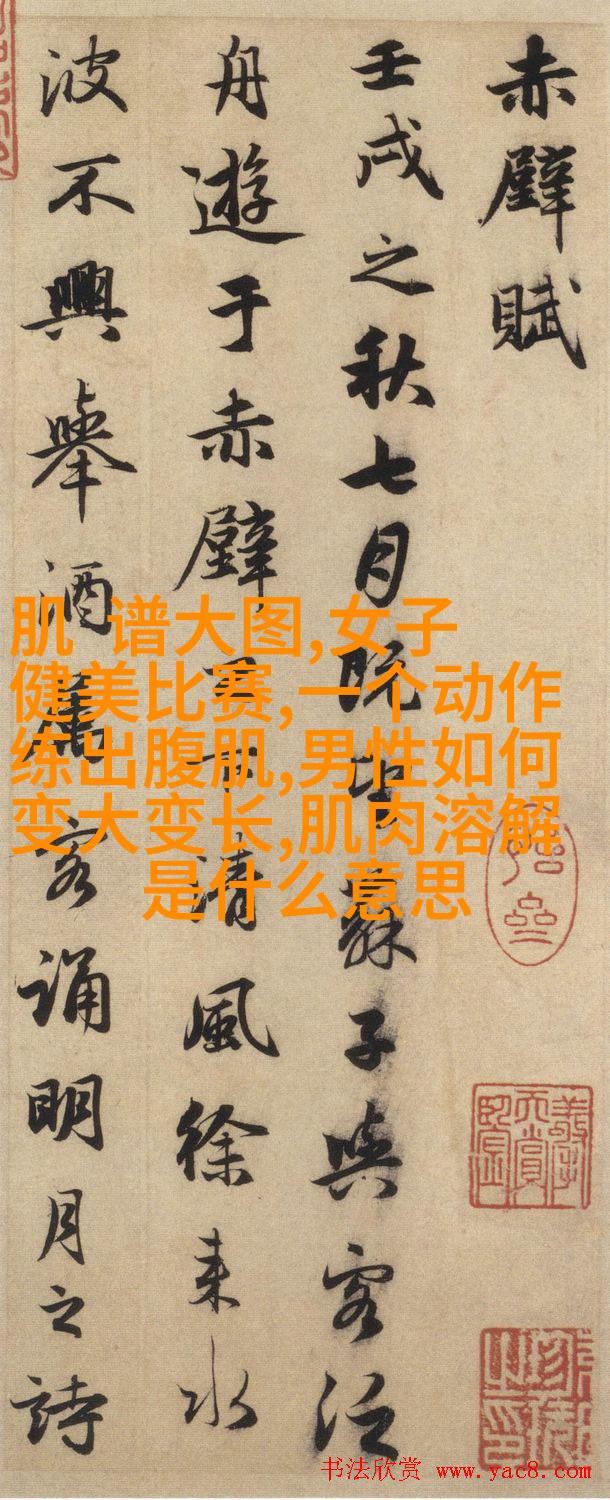 赤壁賦
壬戌之秋七月既望蘇子與客泛
舟遊于赤壁之下清風徐来水
波不興舉酒屬客誦明月之詩
肌 谱大图,女子
健美比赛,一个动作
练出腹肌,男性如何
变大变长,肌肉溶解
是什么意思
书法欣赏 www.yac8.com